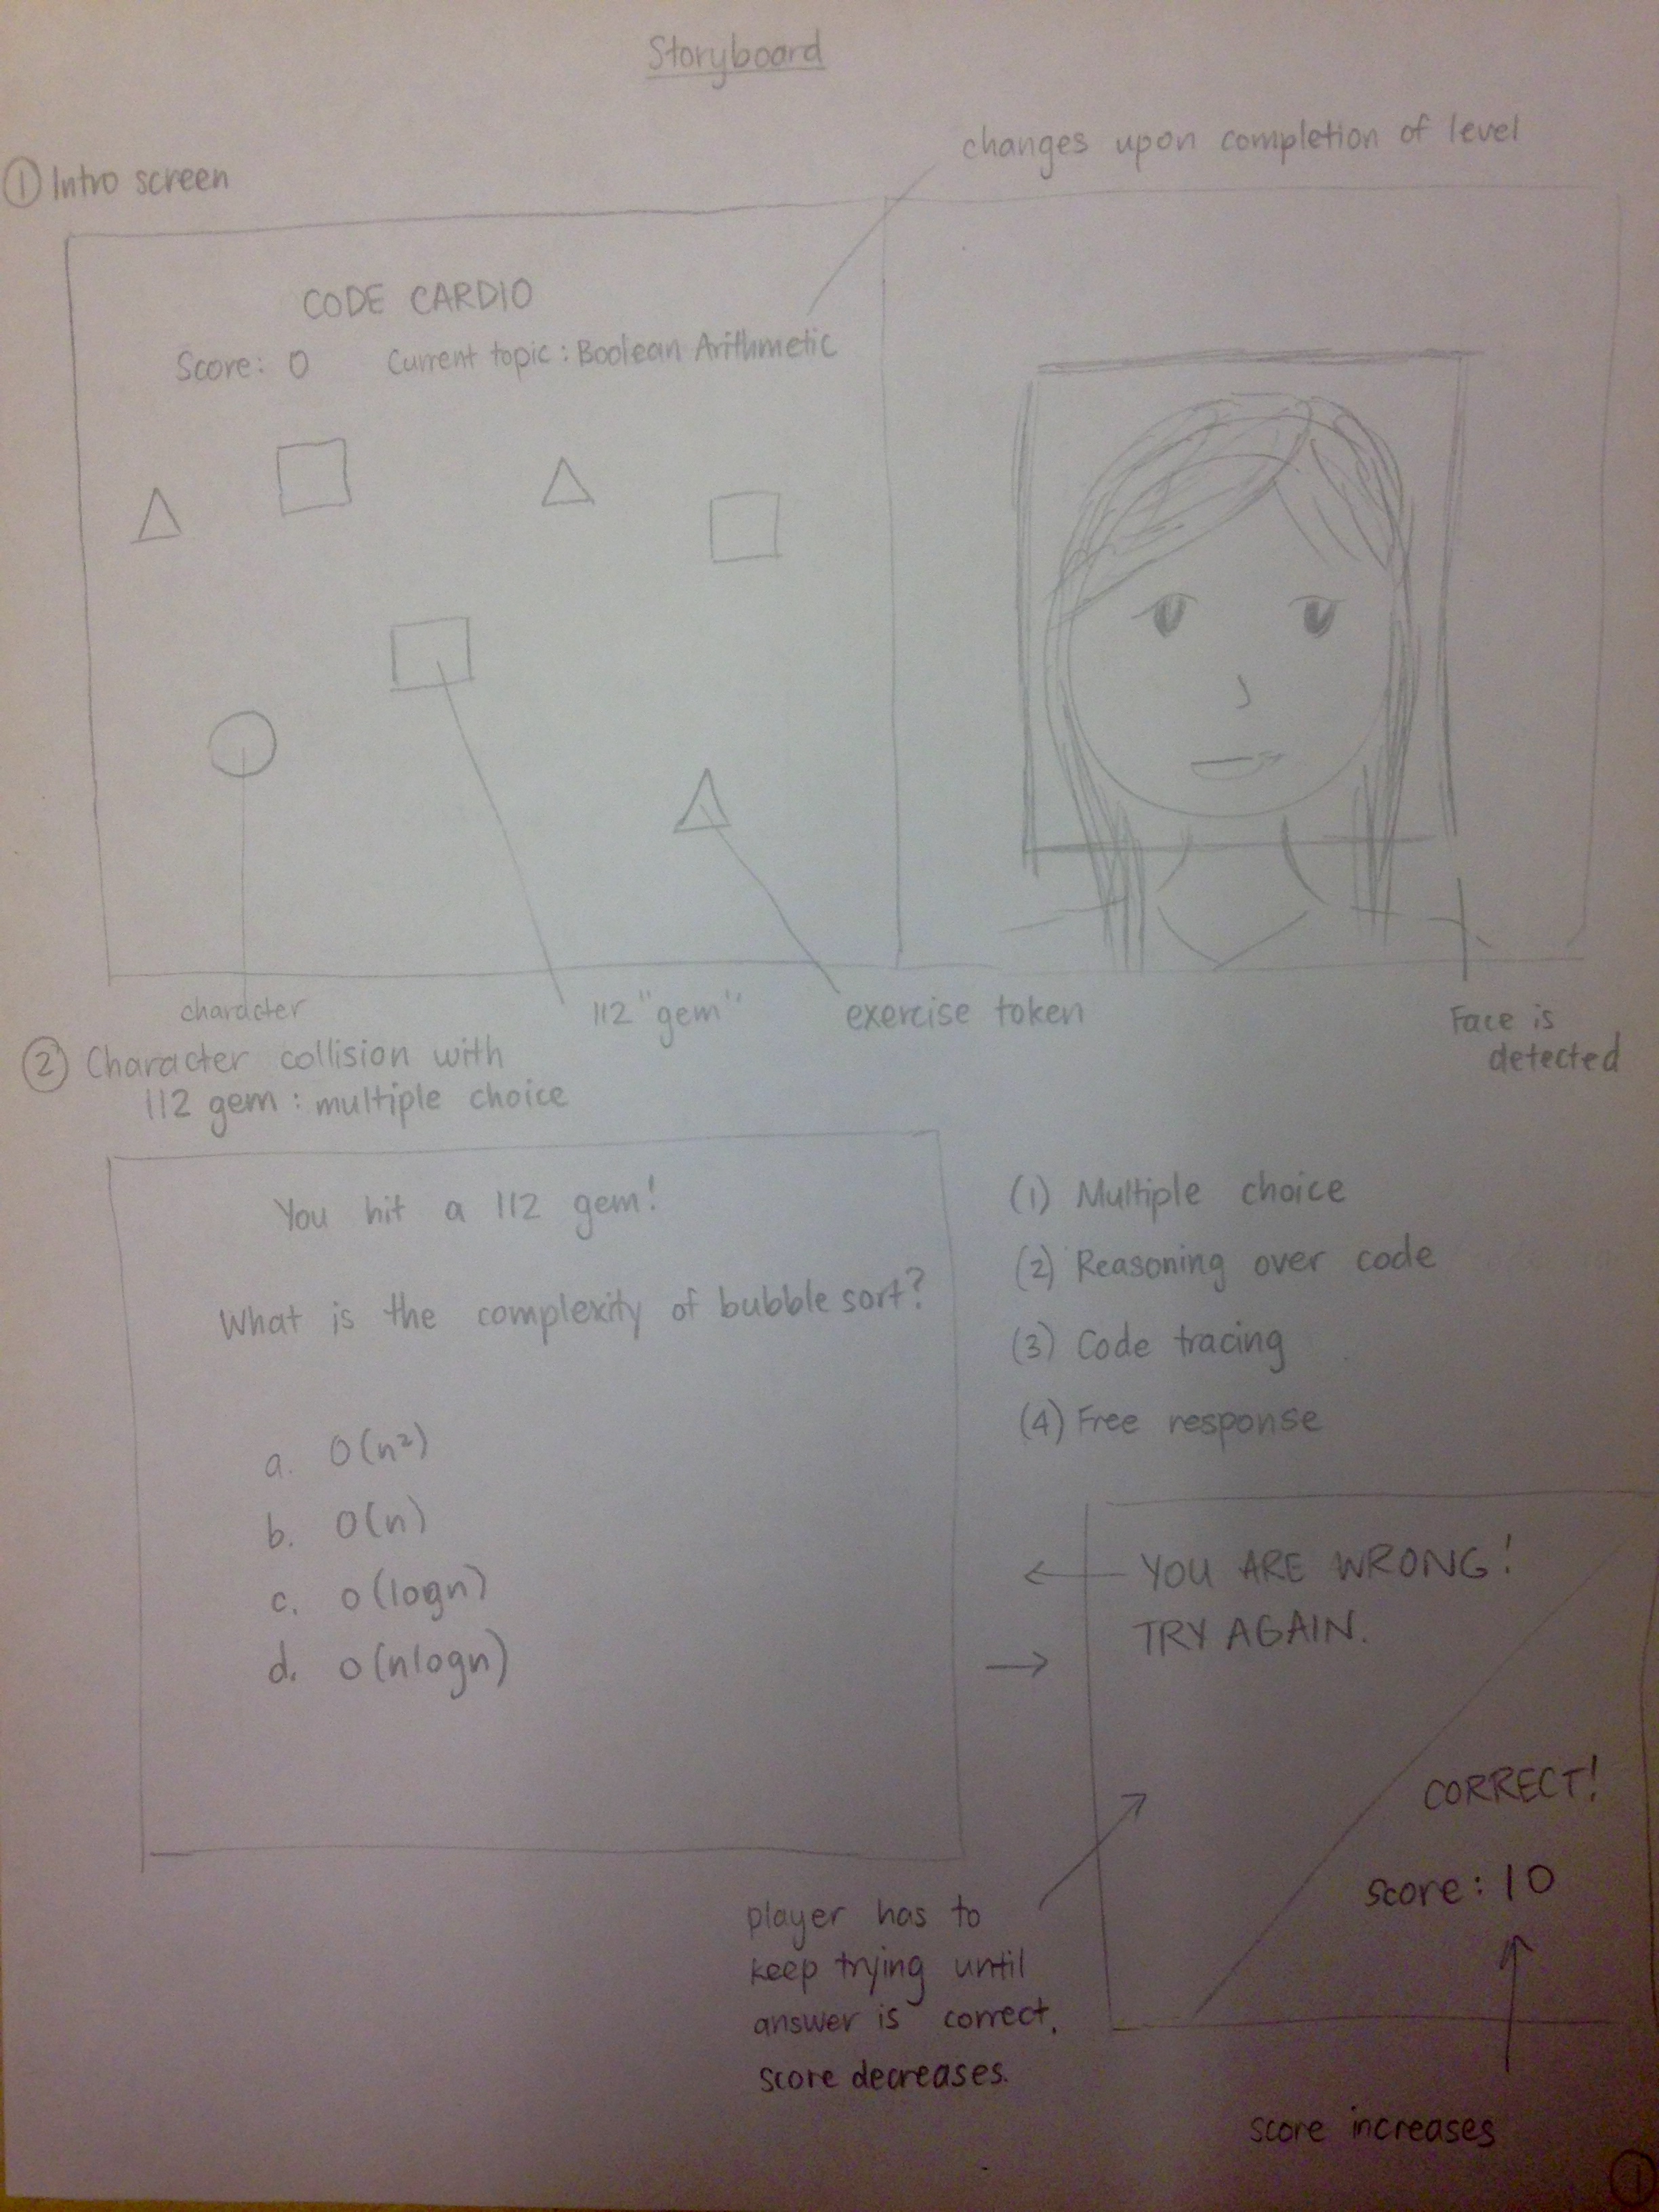 Storyboard
changes upon completion of level
① Intro screen
CODE CARDIO
Score: 0 Current topic: Boolean Arithmetic
character
112 "gem"
exercise token
Face is
detected
② Character collision with
112 gem: multiple choice
You hit a 112 gem!
What is the complexity of bubble sort?
a. O(n²)
b. O(n)
c. O(logn)
d. O(nlogn)
(1) Multiple choice
(2) Reasoning over code
(3) Code tracing
(4) Free response
YOU ARE WRONG!
TRY AGAIN.
CORRECT!
score: 10
player has to
keep trying until
answer is correct.
score decreases.
score increases
①